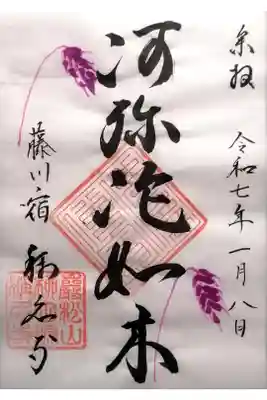 奉拝 令和七年一月八日
阿弥陀如来
藤川宿 称名寺
巖松山